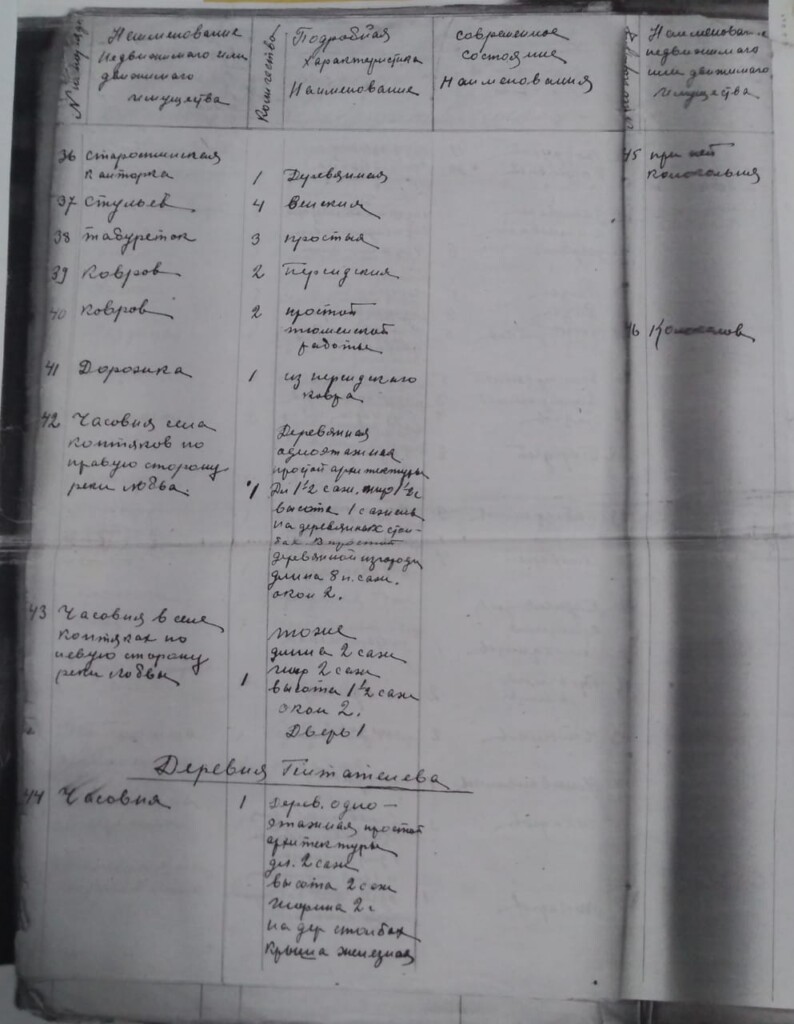 № по поряд.
Наименование
недвижимого или
движимого
имущества
Количество
Подробная
характеристика
Наименование
современное
состояние
Наименования
36 старостинская
канторка 1 Деревянная
37 стульев 4 венския
38 табуреток 3 простыя
39 ковров 2 персидския
40 ковров 2 простой
тюменской
работы
41 Дорожка 1 из персидского
ковра
42 Часовня села
Коптяков по
правую сторону
реки Лобва. 1
Деревянная
одноэтажная
простой архитектуры
Дл 1½ саж. шир 1½ с
высота 1 сажень
на деревянных стол-
бах. В простой
деревянной изгороди
длина 8 п. саж.
окон 2.
43 Часовня в селе
Коптяках по
левую сторону
реки Лобвы 1
тоже
длина 2 саж
шир 2 саж
высота 1½ саж
окон 2.
Дверь 1
Деревня Питателева
44 Часовня 1 Дерев. одно-
этажная простой
архитектуры
дл. 2 саж
высота 2 саж
ширина 2 с
на дер столбах
крыша железная
Наименование
недвижимого
или движимого
имущества
45 при ней
колокольня
46 Колоколов